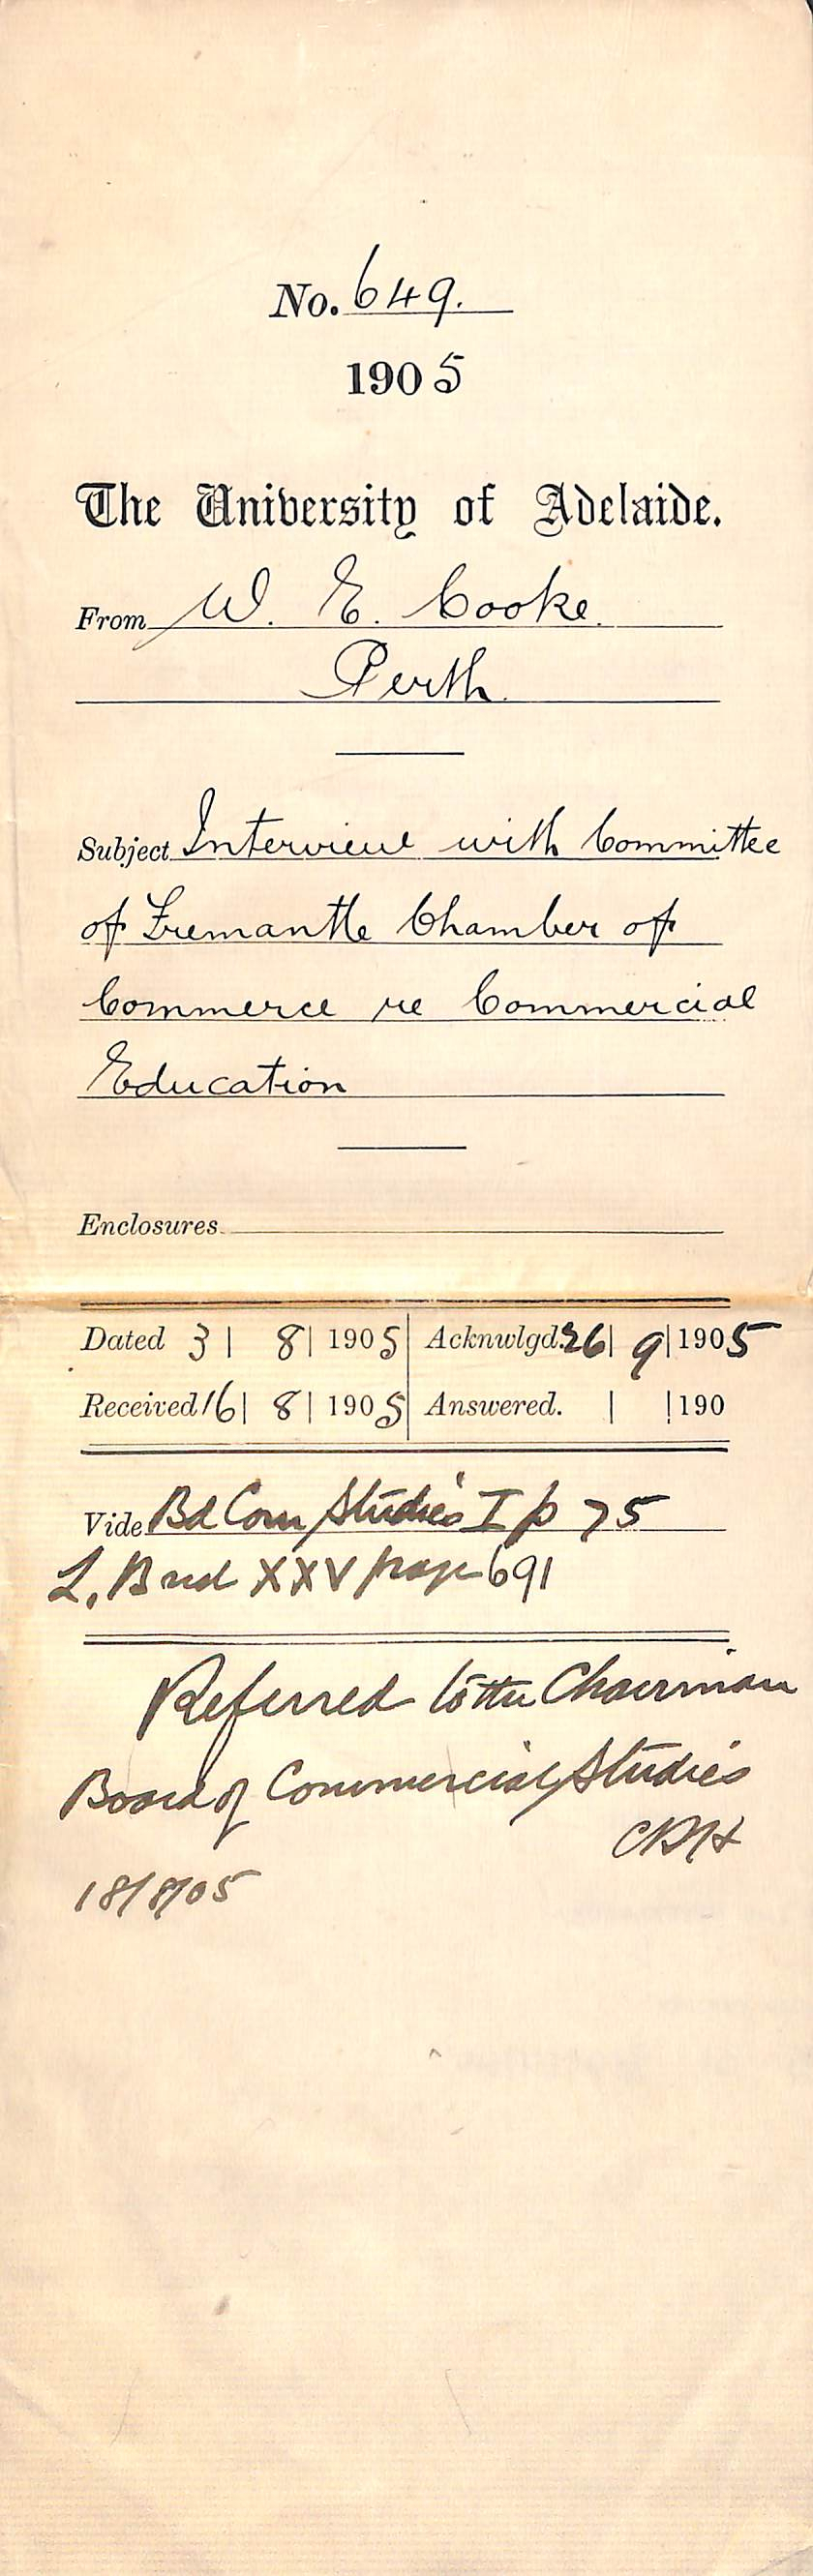 No. 649.
1905
The University of Adelaide.
From W. E. Cooke.
Perth
Subject Interview with Committee
of Fremantle Chamber of
Commerce re Commercial
Education
Enclosures
Dated 3 | 8 | 1905 Acknwlgd. 26 | 9 | 1905
Received 16 | 8 | 1905 Answered. | | 190
Vide Bd Com Studies I p 75
L. B XXV page 691
Referred to the Chairman
Board of Commercial Studies
18/8/05